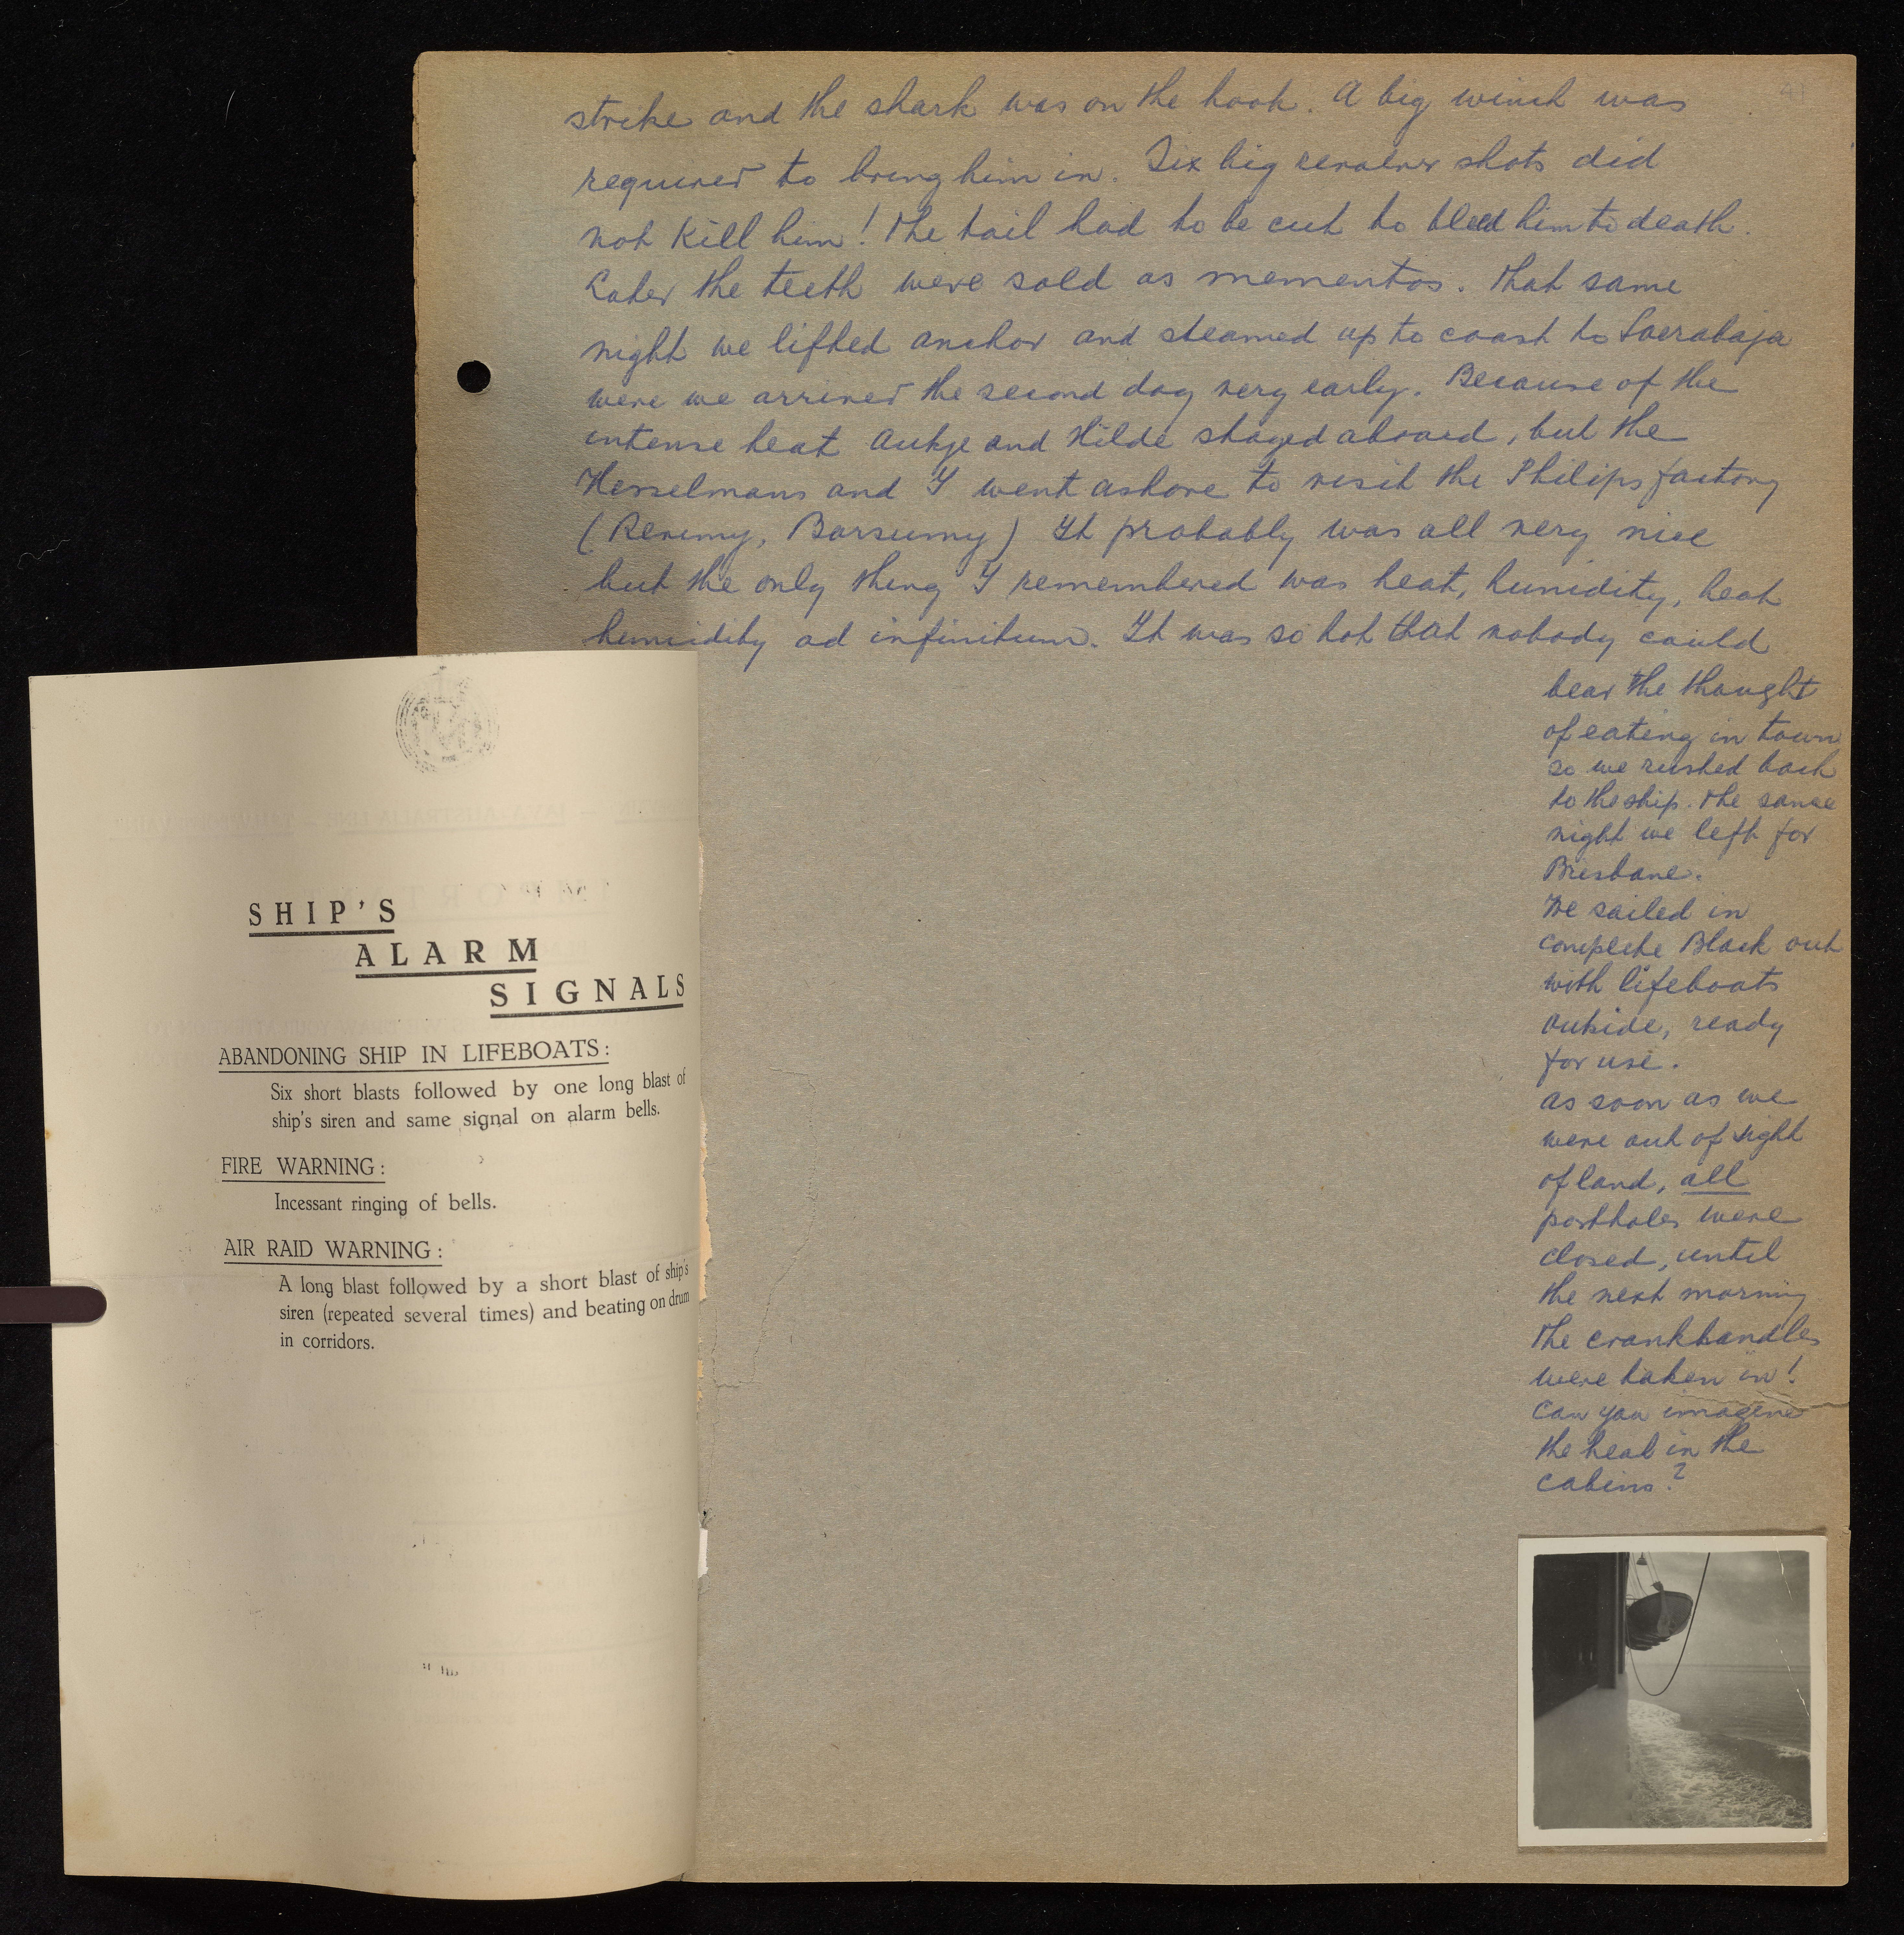 41
strike and the shark was on the hook. A big winch was
required to bring him in. Six big revolver shots did
not kill him! The tail had to be cut to bleed him to death.
Later the teeth were sold as mementos. That same
night we lifted anchor and steamed up to coast to Soerabaja
were we arrived the second day very early. Because of the
intense heat Aukje and Hilde stayed aboard, but the
Hesselmans and I went ashore to visit the Philips factory
( Barsumy) It probably was all very nice
but the only thing I remembered was heat, humidity, heat
humidity ad infinitum. It was so hot that nobody could
bear the thought
of eating in town
so we rushed back
to the ship. The same
night we left for
Brisbane.
We sailed in
complete Black out
with lifeboats
outside, ready
for use.
as soon as we
were out of sight
of land, all
portholes were
closed, until
the next morning
the crankhandles
were taken in!
Can you imagine
the heat in the
cabins?
SHIP'S
ALARM
SIGNALS
ABANDONING SHIP IN LIFEBOATS:
Six short blasts followed by one long blast of
ship's siren and same signal on alarm bells.
FIRE WARNING:
Incessant ringing of bells.
AIR RAID WARNING:
A long blast followed by a short blast of ship's
siren (repeated several times) and beating on drum
in corridors.